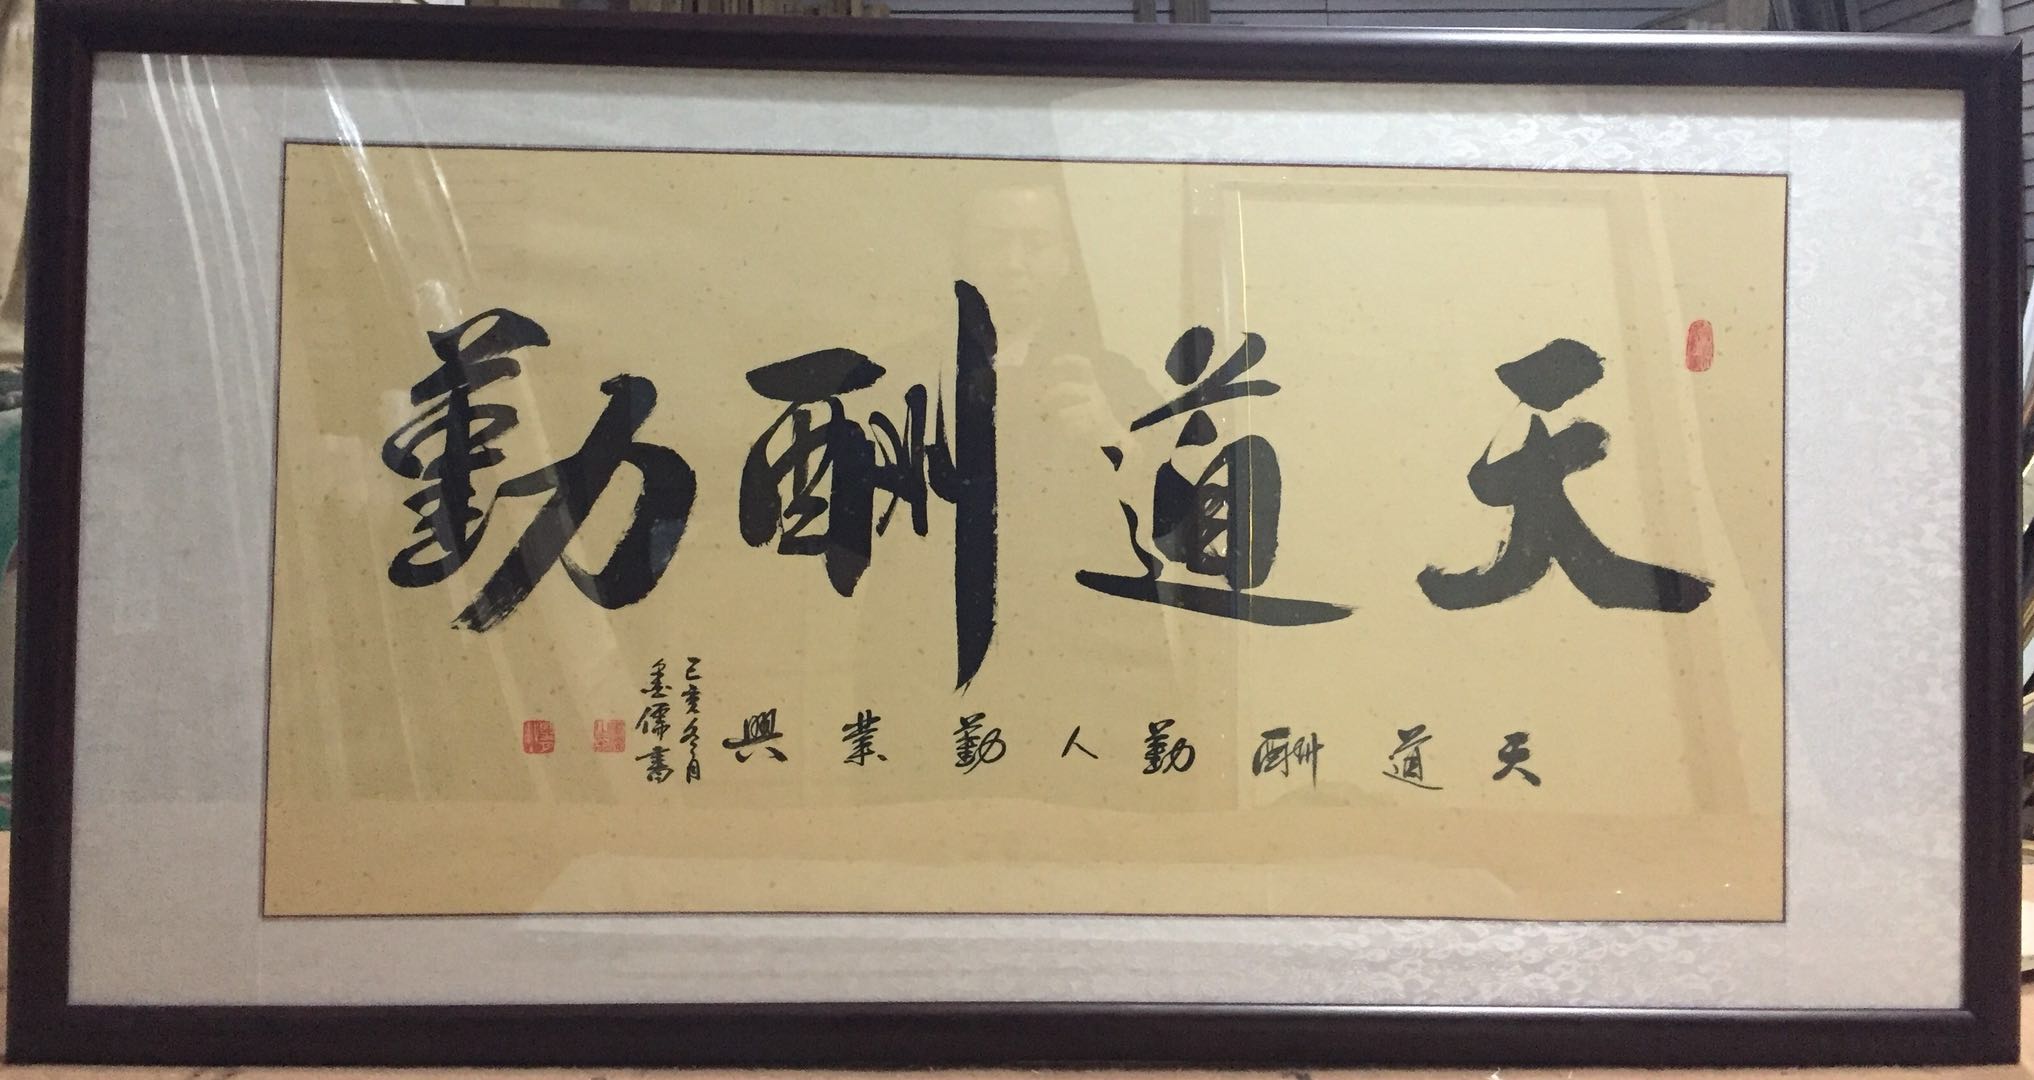 天道酬勤
天道酬勤人勤業興
己亥冬月
墨儒書